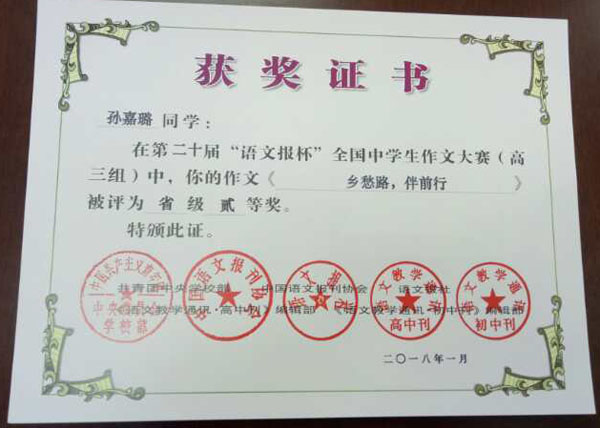 获奖证书
孙嘉璐 同学：
在第二十届“语文报杯”全国中学生作文大赛（高
三组）中，你的作文《 乡愁路，伴前行 》
被评为 省 级 贰 等奖。
特颁此证。
共青团中央学校部 中国语文报刊协会 语文报社
《语文教学通讯·高中刊》编辑部 《语文教学通讯·初中刊》编辑部
中国共产主义青年团
中央委员会
学校部
中国语文报刊协会
语文报社
语文教学通讯
高中刊
语文教学通讯
初中刊
二〇一八年一月